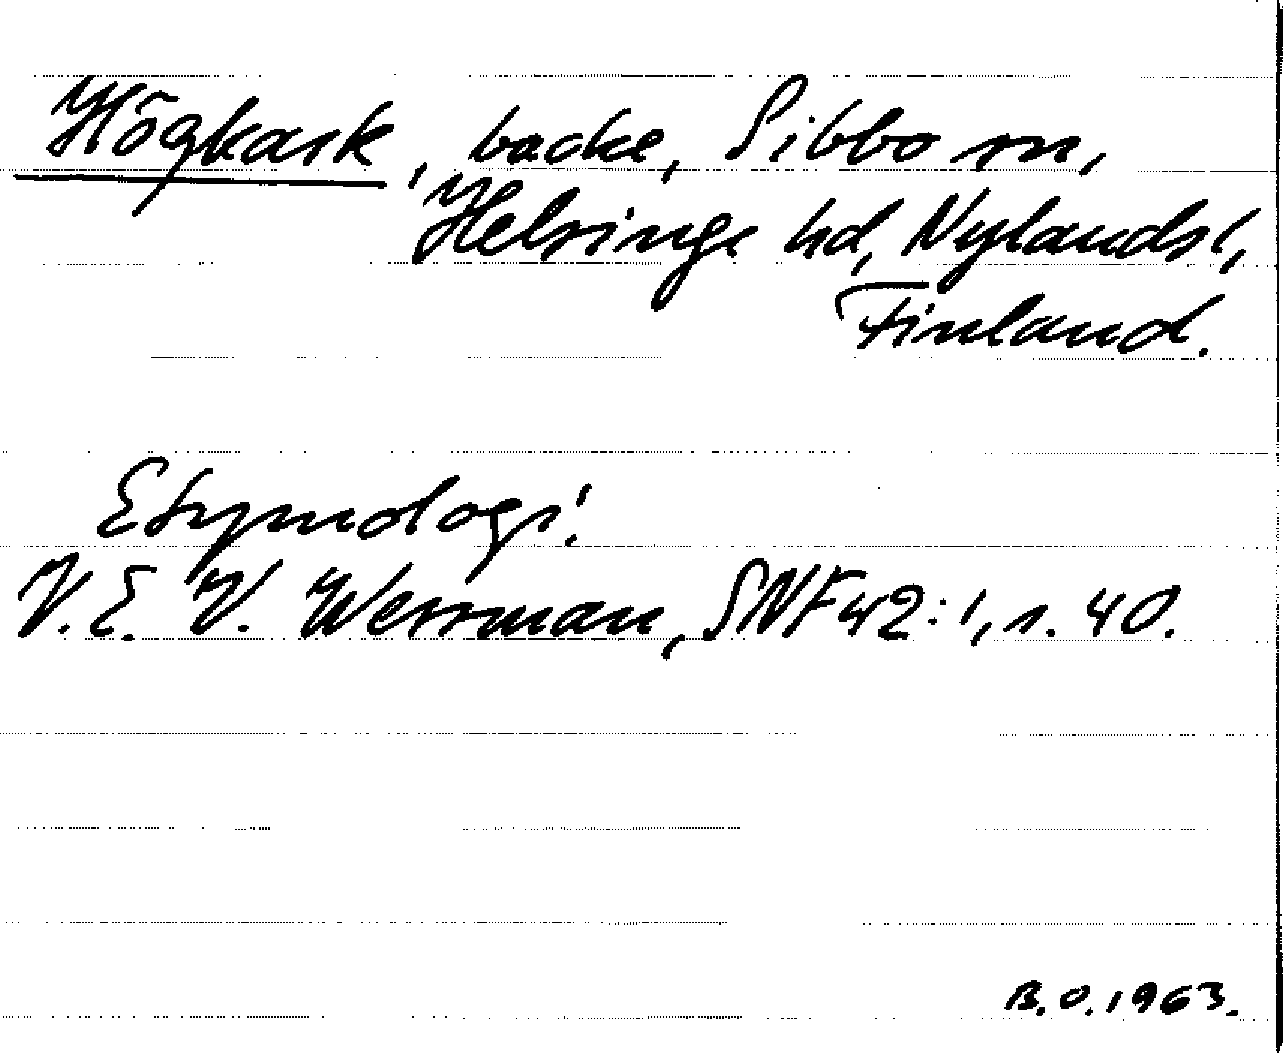 Högkask, backe, Sibbo sn,
Helsinge hd, Nylands l,
Finland.
Etymologi!
V. E. V. Wessman, SNF 42:1, s. 40.
B.O. 1963.